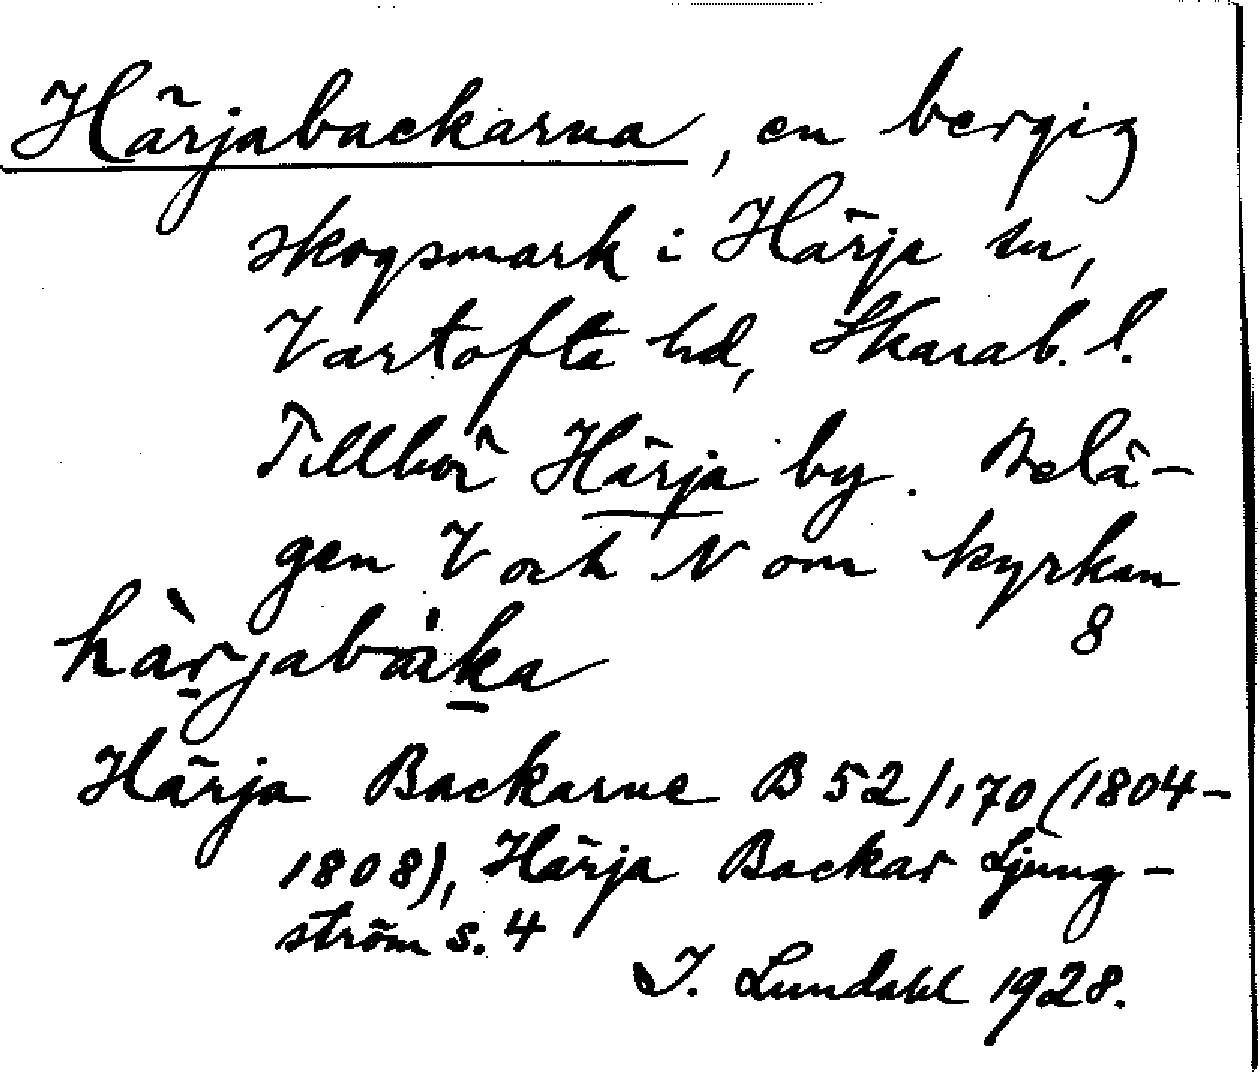 Härjabackarna, en bergig
skogsmark i Härja sn,
Vartofta hd, Skarab. l.
Tillhör Härja by. Belä-
gen V och N om kyrkan
8
Härja Backarne B 52/170 (1804-
1808), Härja Backar Ljung-
ström s. 4
I. Lundahl 1928.